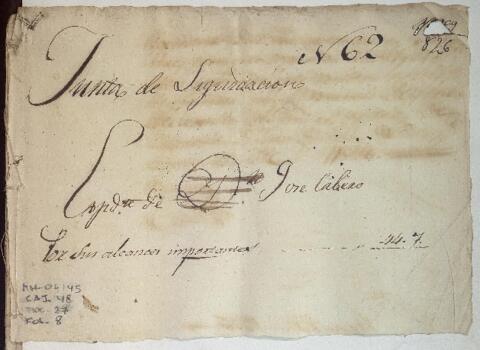 Nº 62
826
Junta de Liquidacion
Expdte de Jose Cabero
Por sus alcances importantes 44. 7
MH-OL 145
CAJ. 48
DOC. 27
FOL. 8